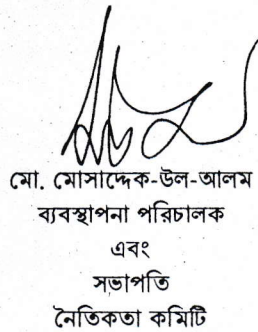 মো. মোসাদ্দেক-উল-আলম
ব্যবস্থাপনা পরিচালক
এবং
সভাপতি
নৈতিকতা কমিটি